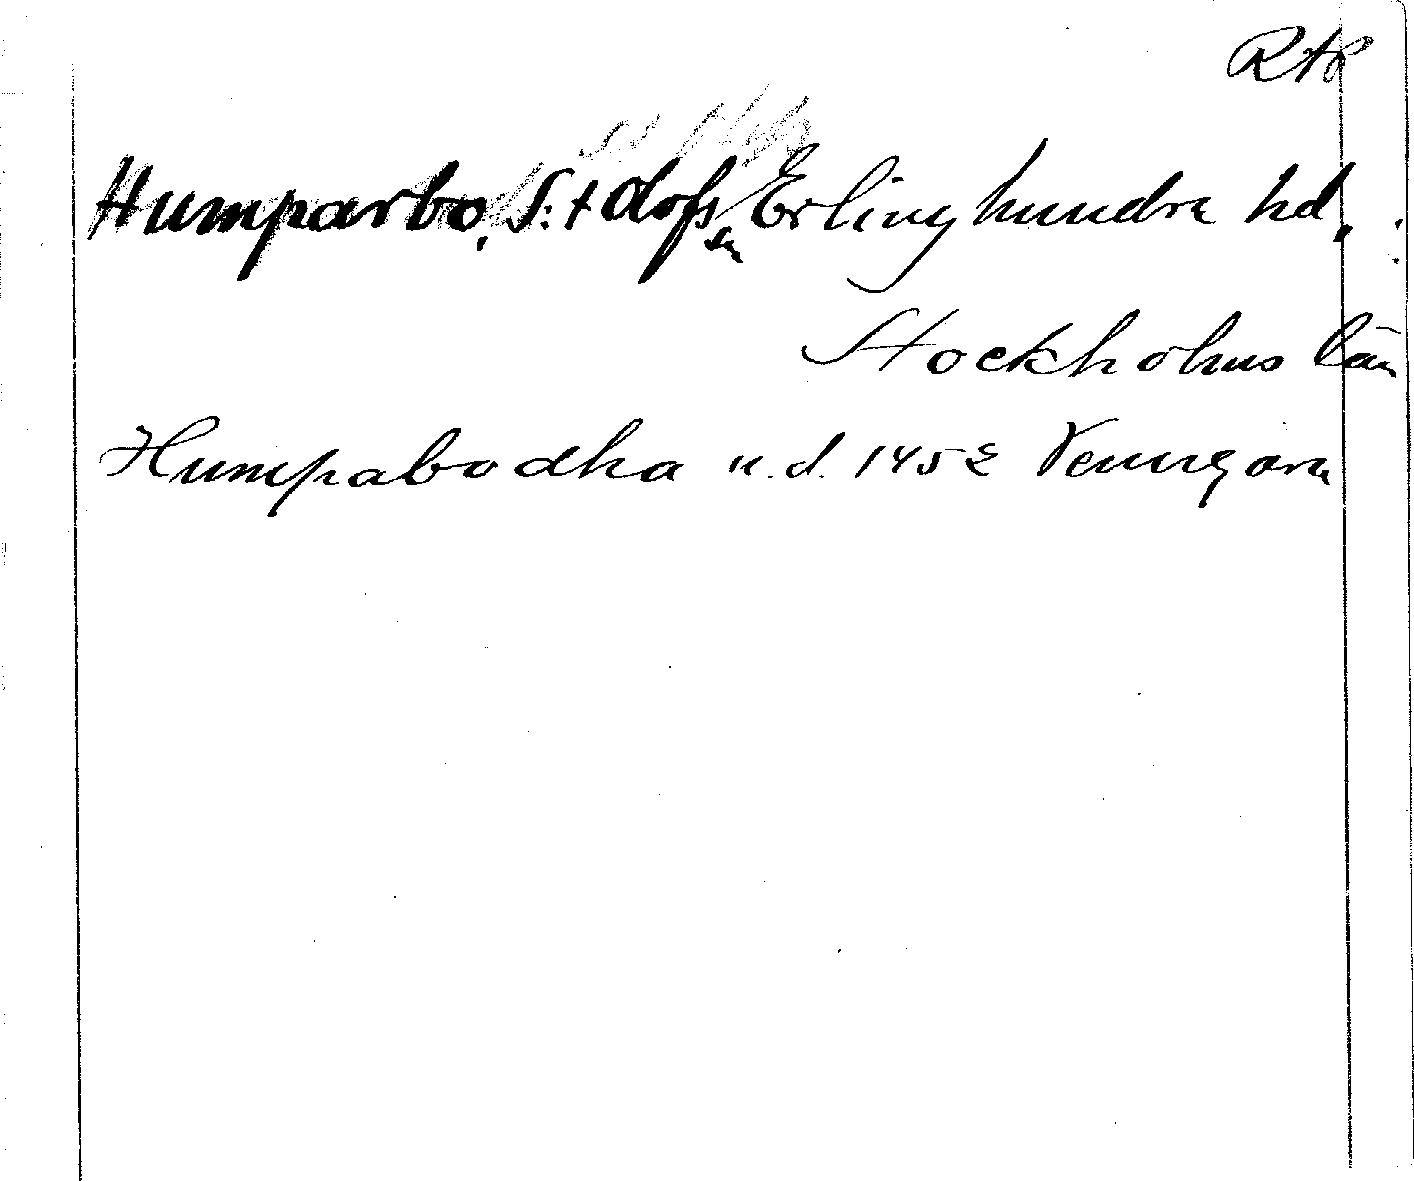 RAP
Humparbo, S:t Olofs sn, Erlinghundra hd,
Stockholms län
Humpabodha u.d. 1452 Venngarn